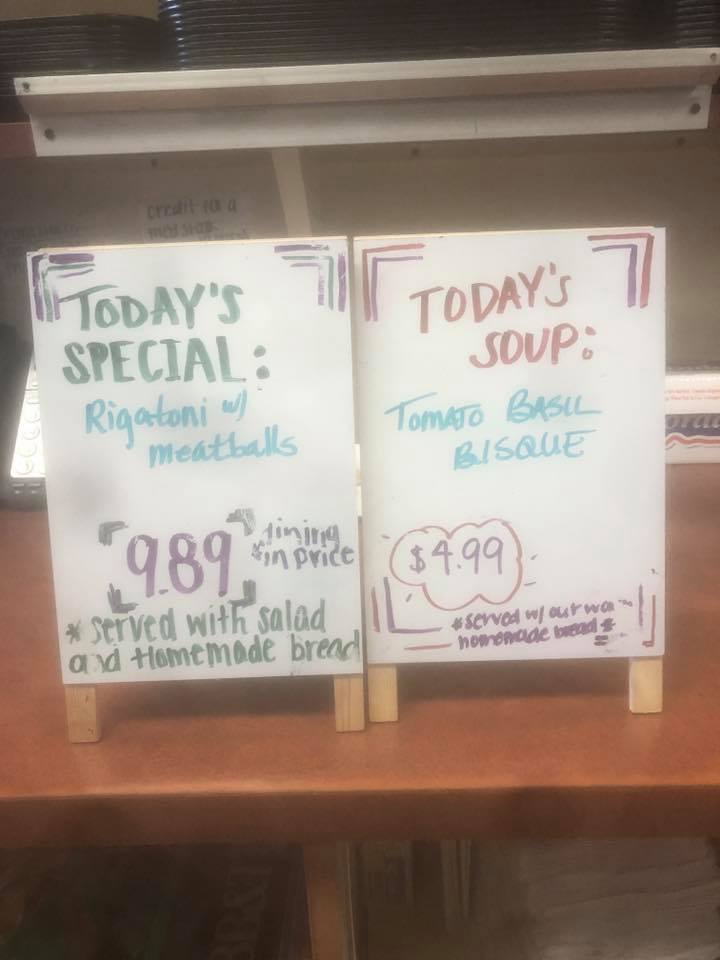 credit for a
TODAY'S
SPECIAL:
Rigatoni w/
meatballs
9.89
dining
*in price
* served with salad
and Homemade bread
TODAY'S
SOUP:
TOMATO BASIL
BISQUE
$4.99
*served w/ our
homemade bread *